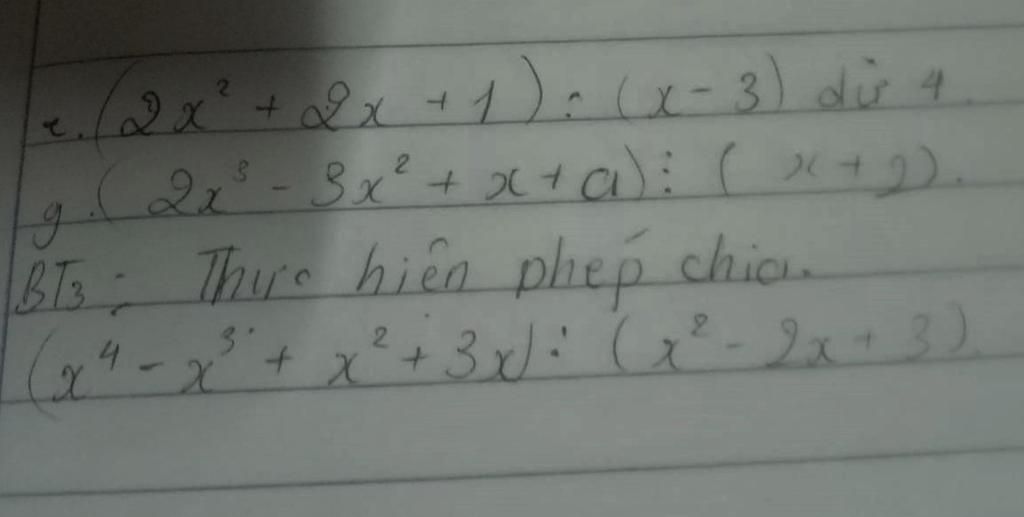 e. (2x² + 2x + 1) : (x - 3) dư 4.
g. (2x³ - 3x² + x + a) ⋮ (x + 2).
BT3 : Thực hiên phép chia.
(x⁴ - x³ + x² + 3x) : (x² - 2x + 3)